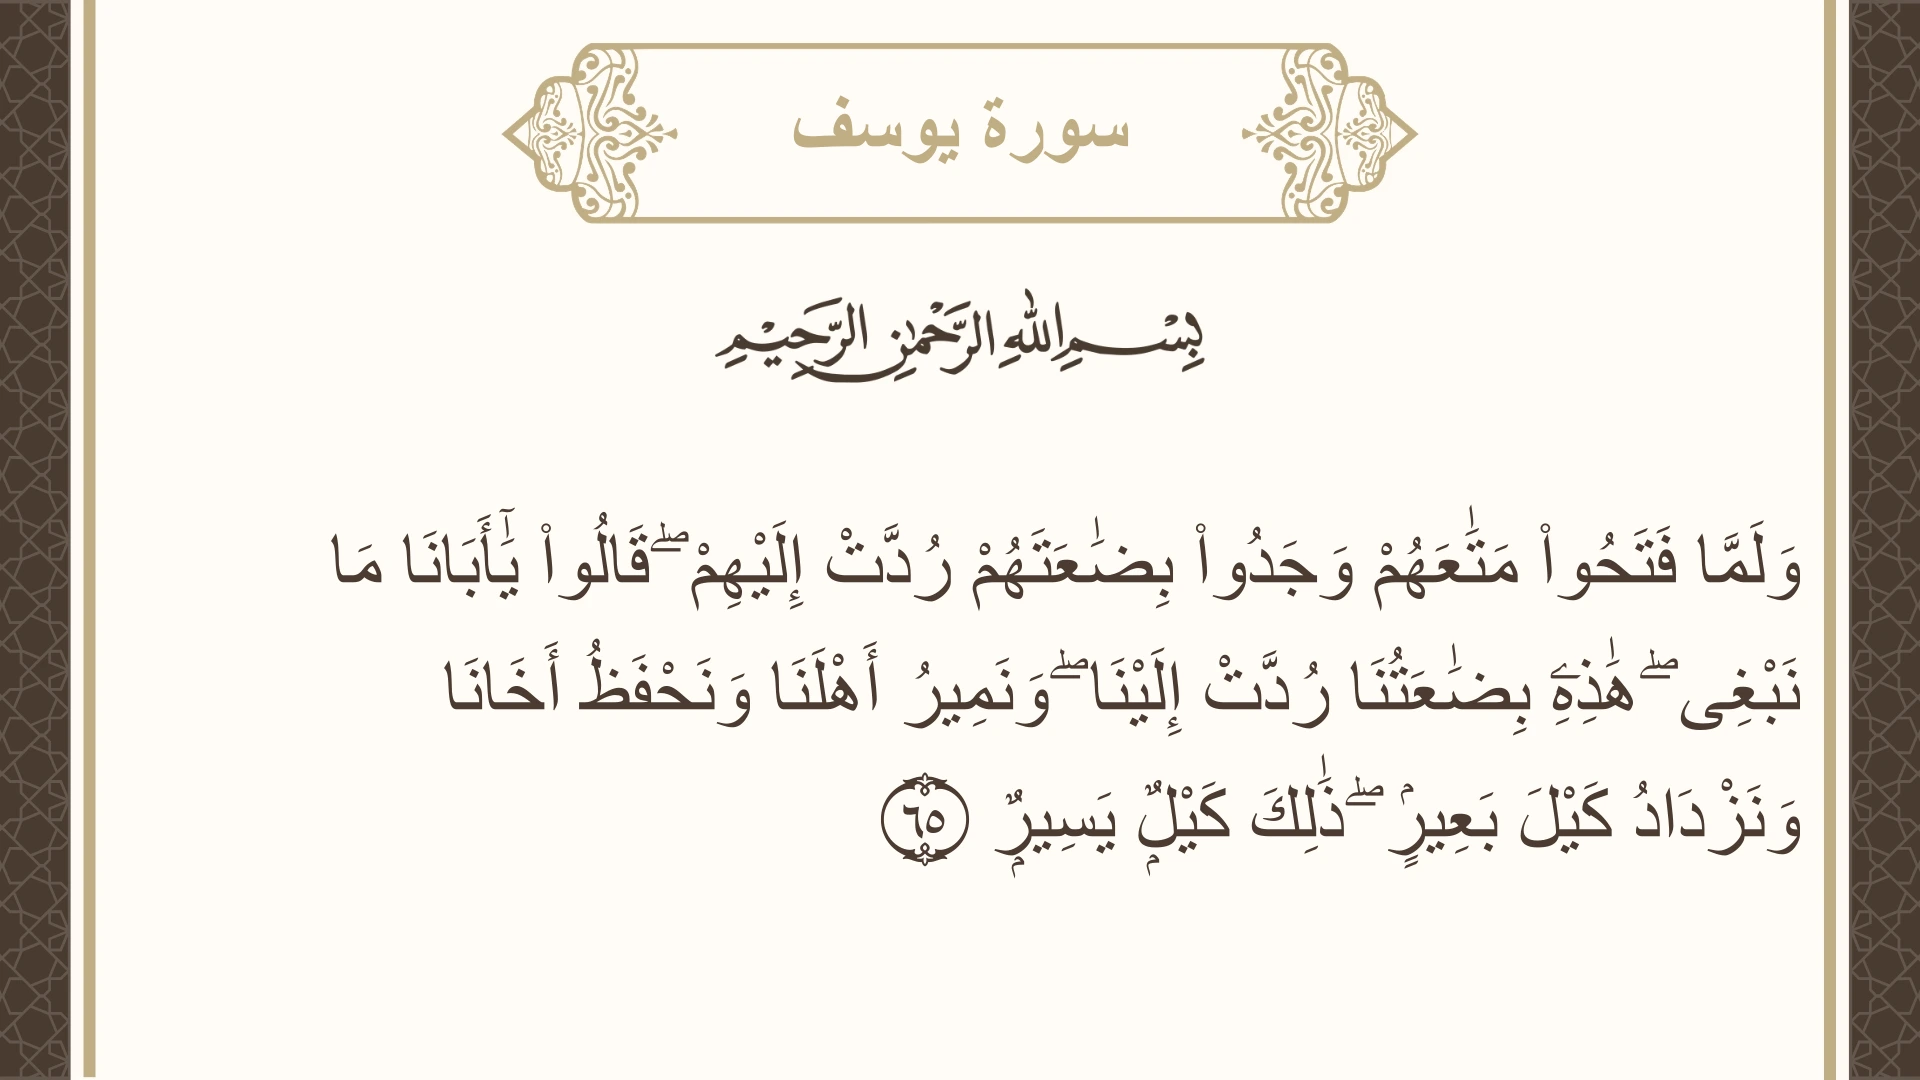 سورة يوسف
بِسْمِ اللهِ الرَّحْمٰنِ الرَّحِيْمِ
وَلَمَّا فَتَحُوا۟ مَتَٰعَهُمْ وَجَدُوا۟ بِضَٰعَتَهُمْ رُدَّتْ إِلَيْهِمْ ۖ قَالُوا۟ يَٰٓأَبَانَا مَا
نَبْغِى ۖ هَٰذِهِۦ بِضَٰعَتُنَا رُدَّتْ إِلَيْنَا ۖ وَنَمِيرُ أَهْلَنَا وَنَحْفَظُ أَخَانَا
وَنَزْدَادُ كَيْلَ بَعِيرٍۢ ۖ ذَٰلِكَ كَيْلٌۭ يَسِيرٌۭ ٦٥